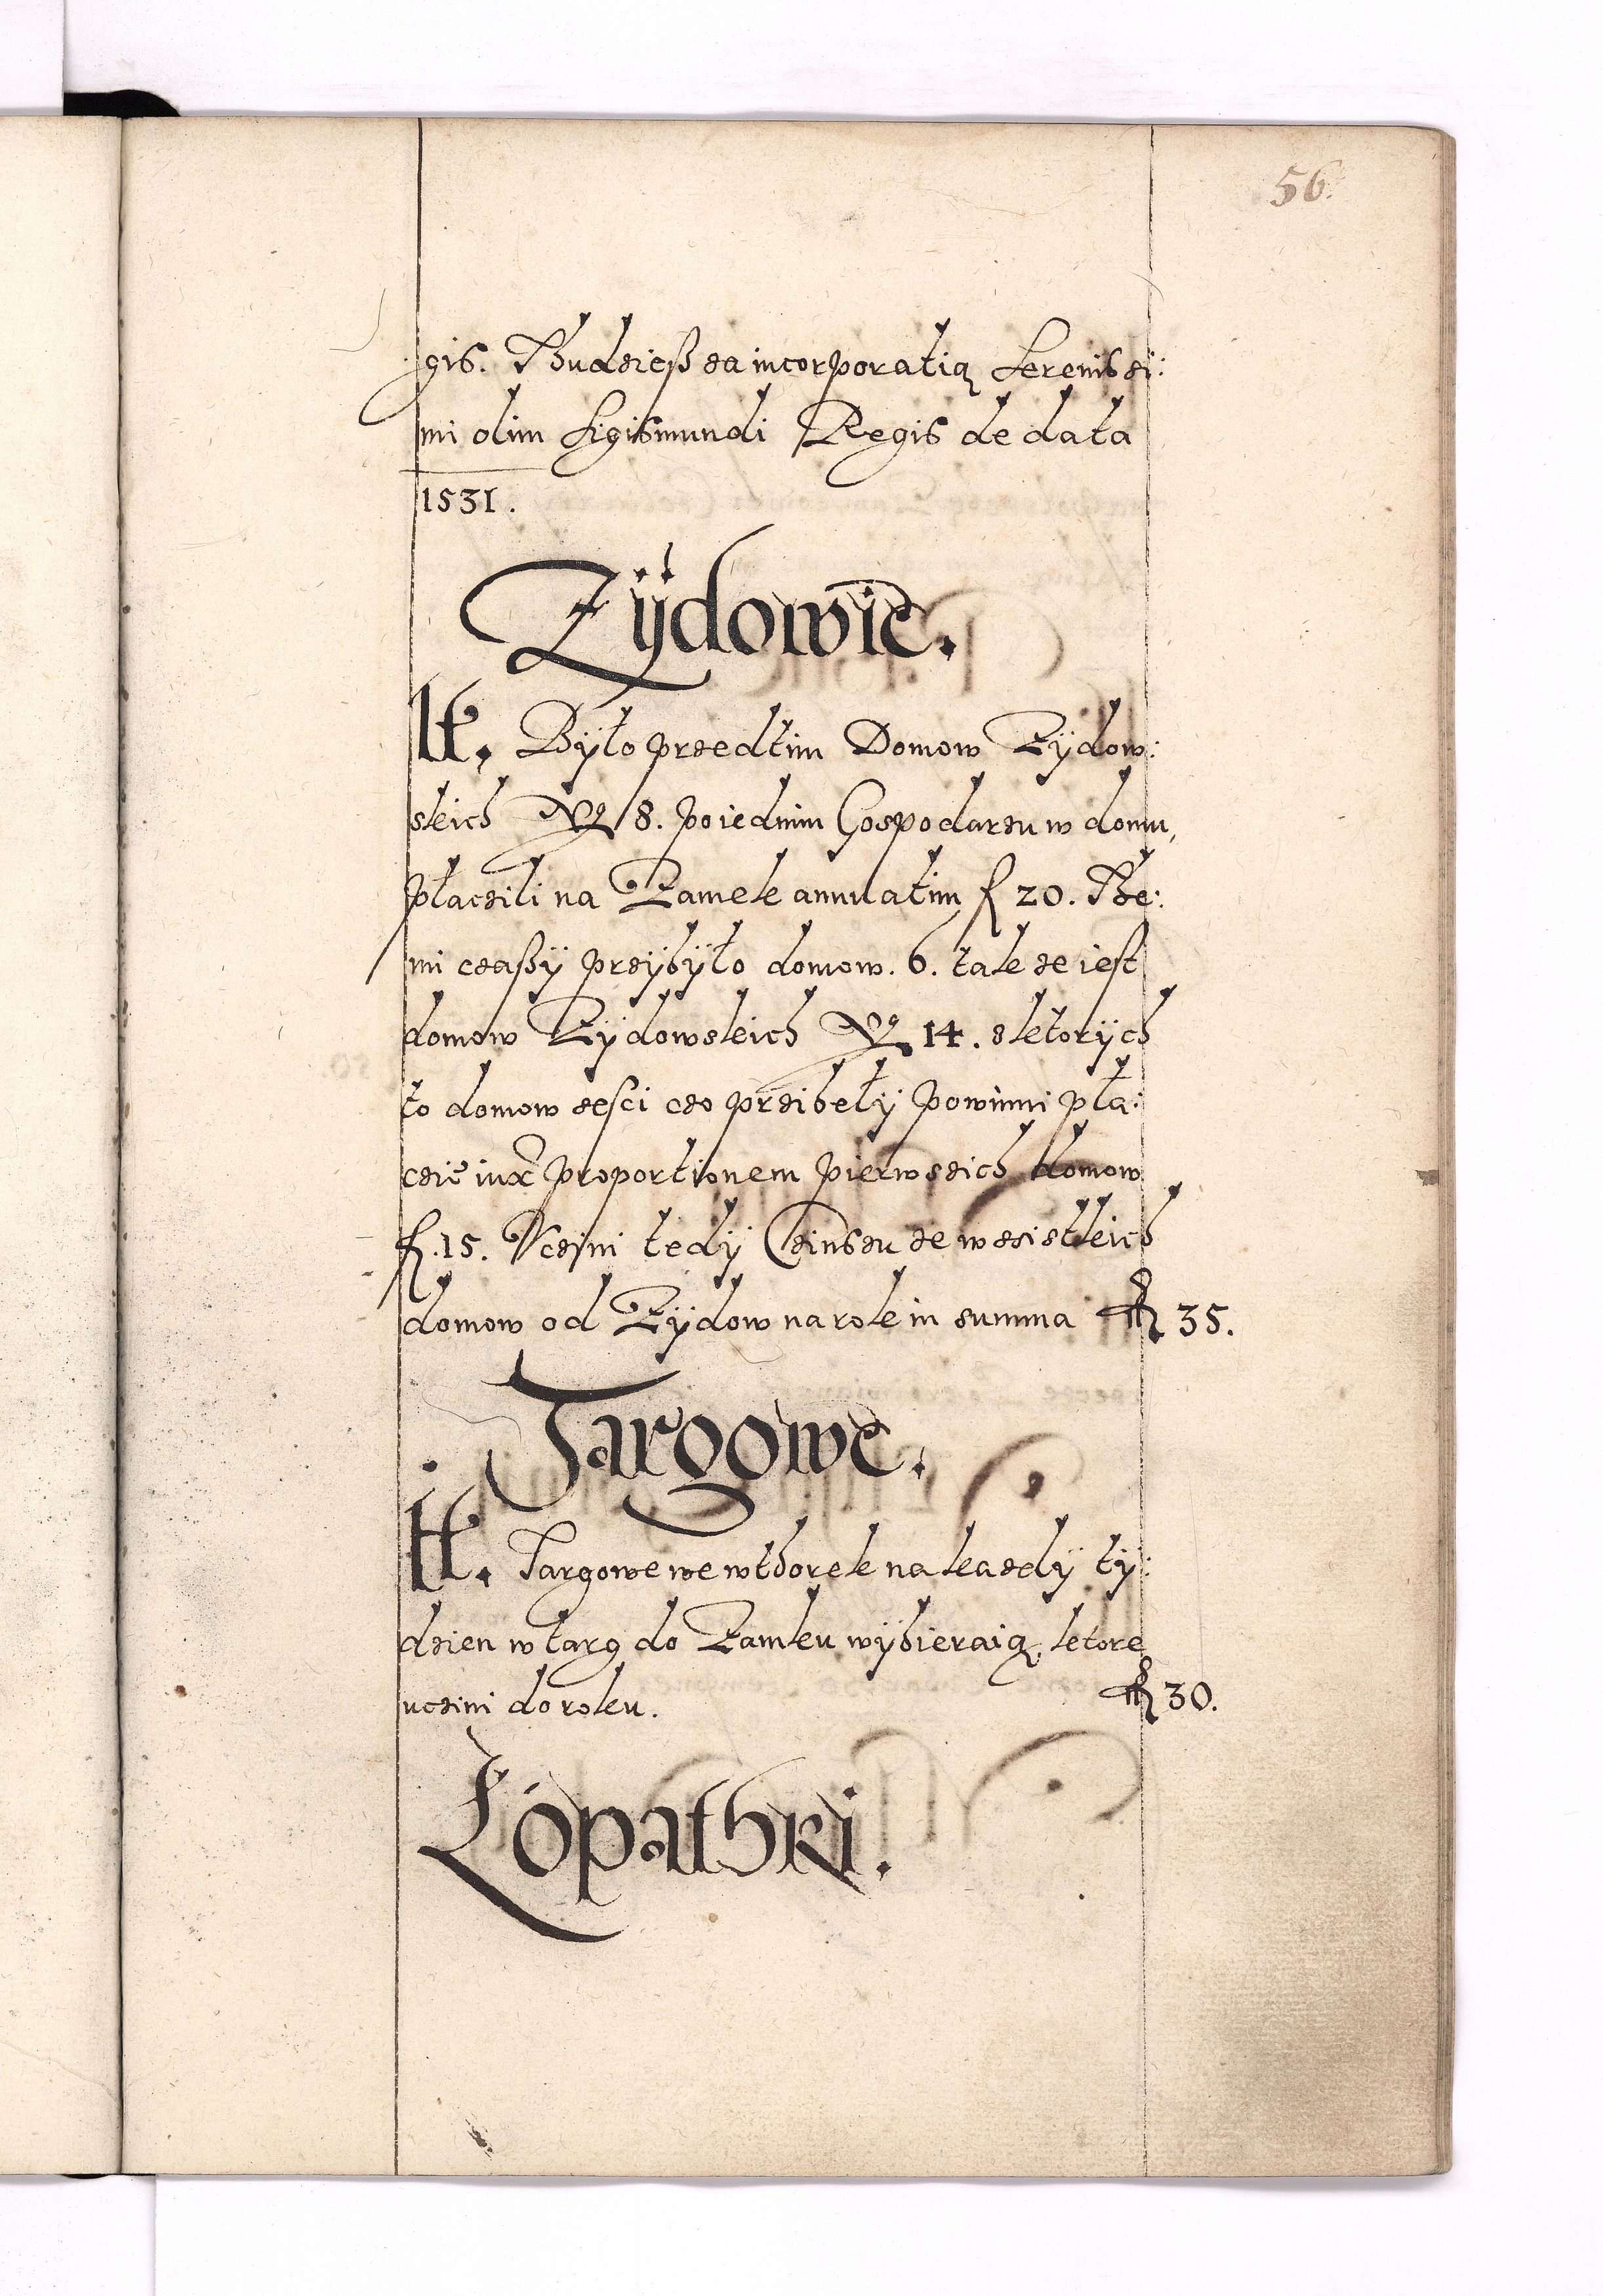 56.
gis. Thudziesz za incorporatią Serenissi:
mi olim Sigismundi Regis de data
1531.
Zÿdowie.
It. Było przedtim Domow Zÿdow:
skich No 8. po iednim Gospodarzu w domu,
płaczili na Zamek annuatim f 20. The:
mi czassÿ przÿbÿło domow. 6. tak ze iest
domow Zÿdowskich No 14. s ktorÿch
to domow sesci czo przibełÿ powinni pła:
czic iux proportionem pierwszich domow
f. 15. Vczini tedÿ Czinszu ze wszistkich
domow od Zÿdow na rok in summa f 35.
Targowe.
It. Targowe we wthorek na kazdÿ tÿ:
dzien w targ do Zamku wÿbieraią, ktore
uczini do roku. f 30.
Łopathki.